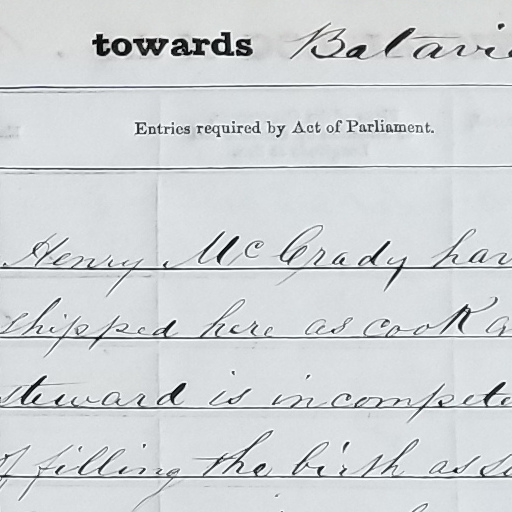 towards Batavi
Entries required by Act of Parliament.
Henry McGrady hav
shipped here as cook a
steward is incompete
of filling the birth as s